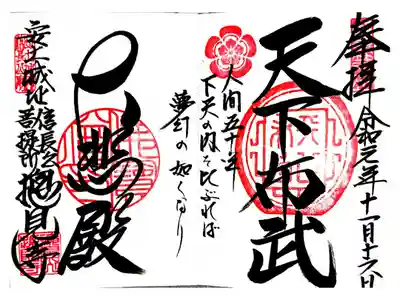 奉拝 令和元年十一月十六日
天下布武
人間五十年
下天の内をくらぶれば
夢幻の如くなり
大悲殿
安土城址
信長公菩提所
摠見寺